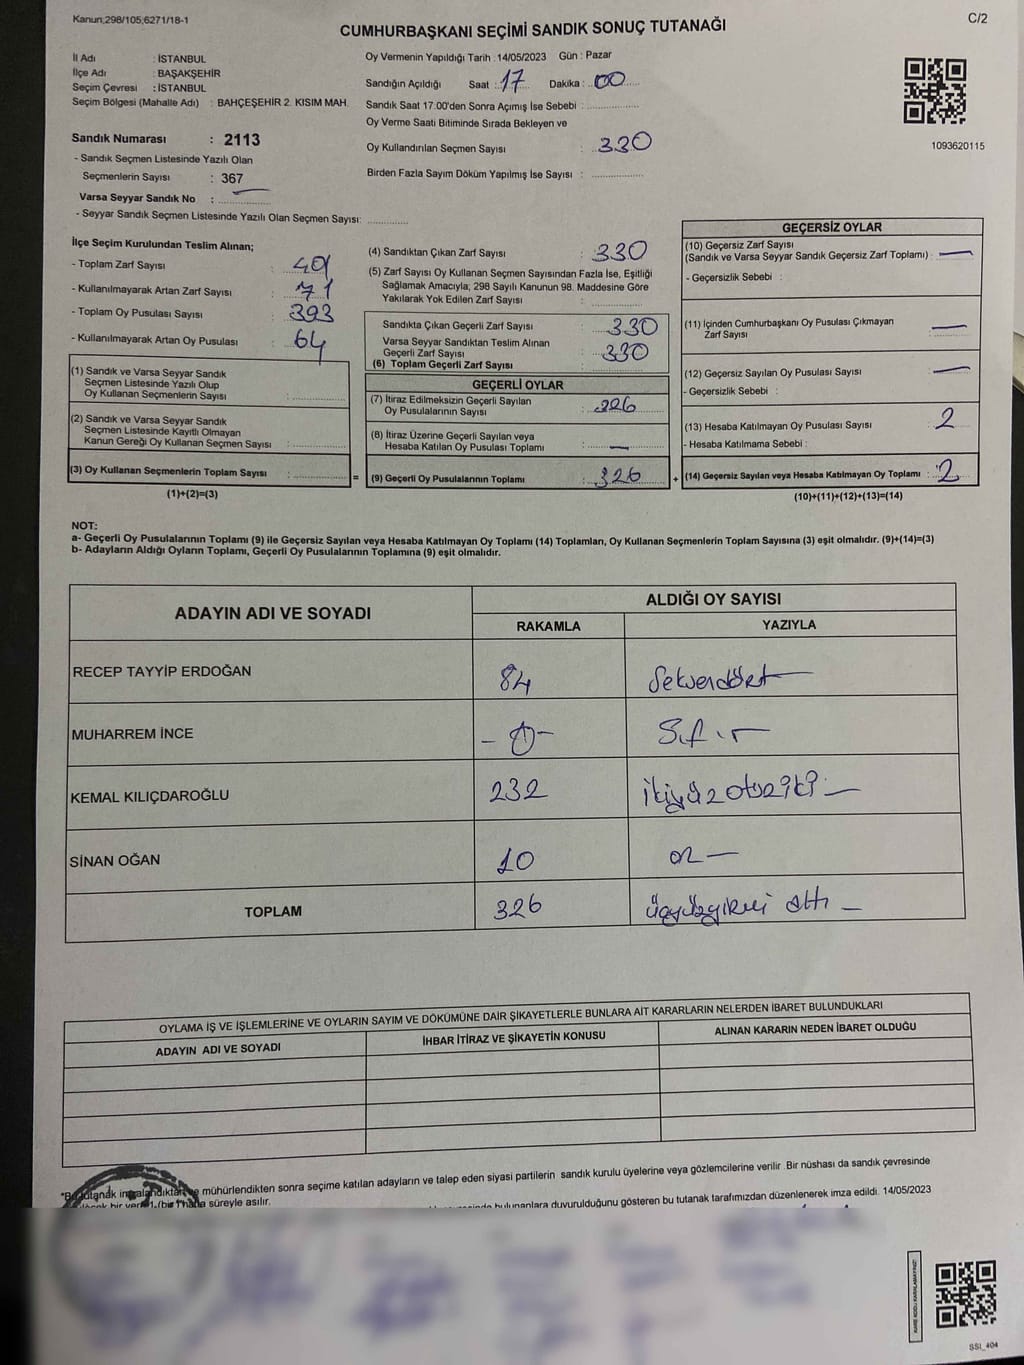 Kanun;298/105;6271/18-1
C/2
CUMHURBAŞKANI SEÇİMİ SANDIK SONUÇ TUTANAĞI
İl Adı : İSTANBUL
İlçe Adı : BAŞAKŞEHİR
Seçim Çevresi : İSTANBUL
Seçim Bölgesi (Mahalle Adı) : BAHÇEŞEHİR 2. KISIM MAH.
Sandık Numarası : 2113
- Sandık Seçmen Listesinde Yazılı Olan
Seçmenlerin Sayısı : 367
Varsa Seyyar Sandık No :
- Seyyar Sandık Seçmen Listesinde Yazılı Olan Seçmen Sayısı:
Oy Vermenin Yapıldığı Tarih :14/05/2023 Gün : Pazar
Sandığın Açıldığı Saat : 17 Dakika : 00
Sandık Saat 17:00'den Sonra Açımış İse Sebebi :
Oy Verme Saati Bitiminde Sırada Bekleyen ve
Oy Kullandırılan Seçmen Sayısı : 330
Birden Fazla Sayım Döküm Yapılmış İse Sayısı :
1093620115
İlçe Seçim Kurulundan Teslim Alınan;
- Toplam Zarf Sayısı : 401
- Kullanılmayarak Artan Zarf Sayısı : 71
- Toplam Oy Pusulası Sayısı : 393
- Kullanılmayarak Artan Oy Pusulası : 64
(1) Sandık ve Varsa Seyyar Sandık
Seçmen Listesinde Yazılı Olup
Oy Kullanan Seçmenlerin Sayısı :
(2) Sandık ve Varsa Seyyar Sandık
Seçmen Listesinde Kayıtlı Olmayan
Kanun Gereği Oy Kullanan Seçmen Sayısı :
(3) Oy Kullanan Seçmenlerin Toplam Sayısı :
(1)+(2)=(3)
(4) Sandıktan Çıkan Zarf Sayısı : 330
(5) Zarf Sayısı Oy Kullanan Seçmen Sayısından Fazla İse, Eşitliği
Sağlamak Amacıyla; 298 Sayılı Kanunun 98. Maddesine Göre
Yakılarak Yok Edilen Zarf Sayısı :
Sandıkta Çıkan Geçerli Zarf Sayısı : 330
Varsa Seyyar Sandıktan Teslim Alınan
Geçerli Zarf Sayısı : 330
(6) Toplam Geçerli Zarf Sayısı :
GEÇERLİ OYLAR
(7) İtiraz Edilmeksizin Geçerli Sayılan
Oy Pusulalarının Sayısı : 326
(8) İtiraz Üzerine Geçerli Sayılan veya
Hesaba Katılan Oy Pusulası Toplamı : —
= (9) Geçerli Oy Pusulalarının Toplamı : 326
GEÇERSİZ OYLAR
(10) Geçersiz Zarf Sayısı
(Sandık ve Varsa Seyyar Sandık Geçersiz Zarf Toplamı) : —
- Geçersizlik Sebebi :
(11) İçinden Cumhurbaşkanı Oy Pusulası Çıkmayan
Zarf Sayısı : —
(12) Geçersiz Sayılan Oy Pusulası Sayısı : —
- Geçersizlik Sebebi :
(13) Hesaba Katılmayan Oy Pusulası Sayısı : 2
- Hesaba Katılmama Sebebi :
+ (14) Geçersiz Sayılan veya Hesaba Katılmayan Oy Toplamı : 2
(10)+(11)+(12)+(13)=(14)
NOT:
a- Geçerli Oy Pusulalarının Toplamı (9) ile Geçersiz Sayılan veya Hesaba Katılmayan Oy Toplamı (14) Toplamları, Oy Kullanan Seçmenlerin Toplam Sayısına (3) eşit olmalıdır. (9)+(14)=(3)
b- Adayların Aldığı Oyların Toplamı, Geçerli Oy Pusulalarının Toplamına (9) eşit olmalıdır.
ADAYIN ADI VE SOYADI
ALDIĞI OY SAYISI
RAKAMLA YAZIYLA
RECEP TAYYİP ERDOĞAN 84 Seksendört —
MUHARREM İNCE - 0 - Sıfır —
KEMAL KILIÇDAROĞLU 232 ikiyüzotuziki —
SİNAN OĞAN 10 on —
TOPLAM 326 üçyüzyirmi altı —
OYLAMA İŞ VE İŞLEMLERİNE VE OYLARIN SAYIM VE DÖKÜMÜNE DAİR ŞİKAYETLERLE BUNLARA AİT KARARLARIN NELERDEN İBARET BULUNDUKLARI
ADAYIN ADI VE SOYADI İHBAR İTİRAZ VE ŞİKAYETİN KONUSU ALINAN KARARIN NEDEN İBARET OLDUĞU
*Bu tutanak imzalandıktan ve mühürlendikten sonra seçime katılan adayların ve talep eden siyasi partilerin sandık kurulu üyelerine veya gözlemcilerine verilir. Bir nüshası da sandık çevresinde
bir yere 1 (bir) hafta süreyle asılır.
bulunanlara duyurulduğunu gösteren bu tutanak tarafımızdan düzenlenerek imza edildi. 14/05/2023
KARE KODU KARALAMAYINIZ!
SSI_404